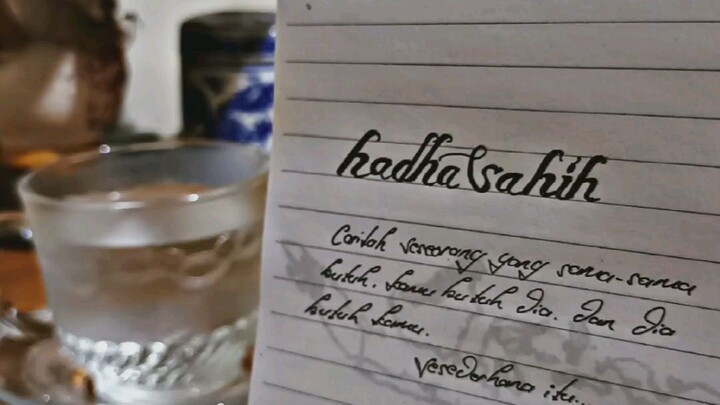 hadha sahih
Carilah seseorang yang sama-sama
butuh. kamu butuh dia. dan dia
butuh kamu.
sesederhana itu...